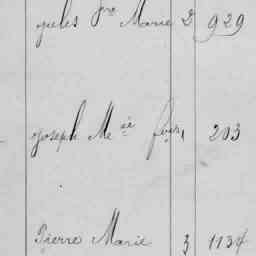 Jules Fre Marie 2 929
Joseph Mie 1 203
Pierre Marie 3 1134